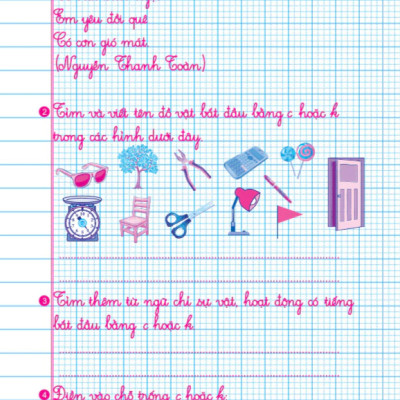 Em yêu đồi quê
Có cơn gió mát.
(Nguyễn Thanh Toàn)
2 Tìm và viết tên đồ vật bắt đầu bằng c hoặc k
trong các hình dưới đây.
3 Tìm thêm từ ngữ chỉ sự vật, hoạt động có tiếng
bắt đầu bằng c hoặc k
4 Điền vào chỗ trống c hoặc k: